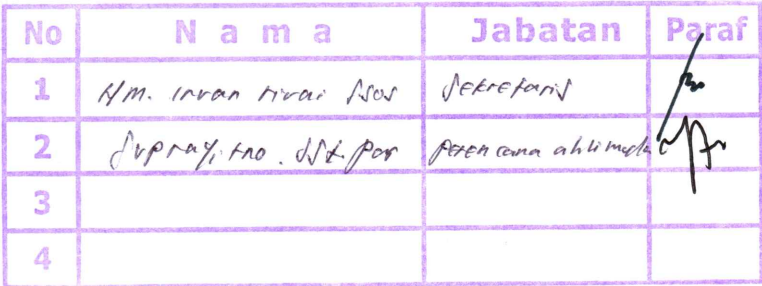 No Nama Jabatan Paraf
1 HM. Irvan rivai SSos Sekretaris
2 Suprayitno. SSt. par perencana ahli muda
3
4